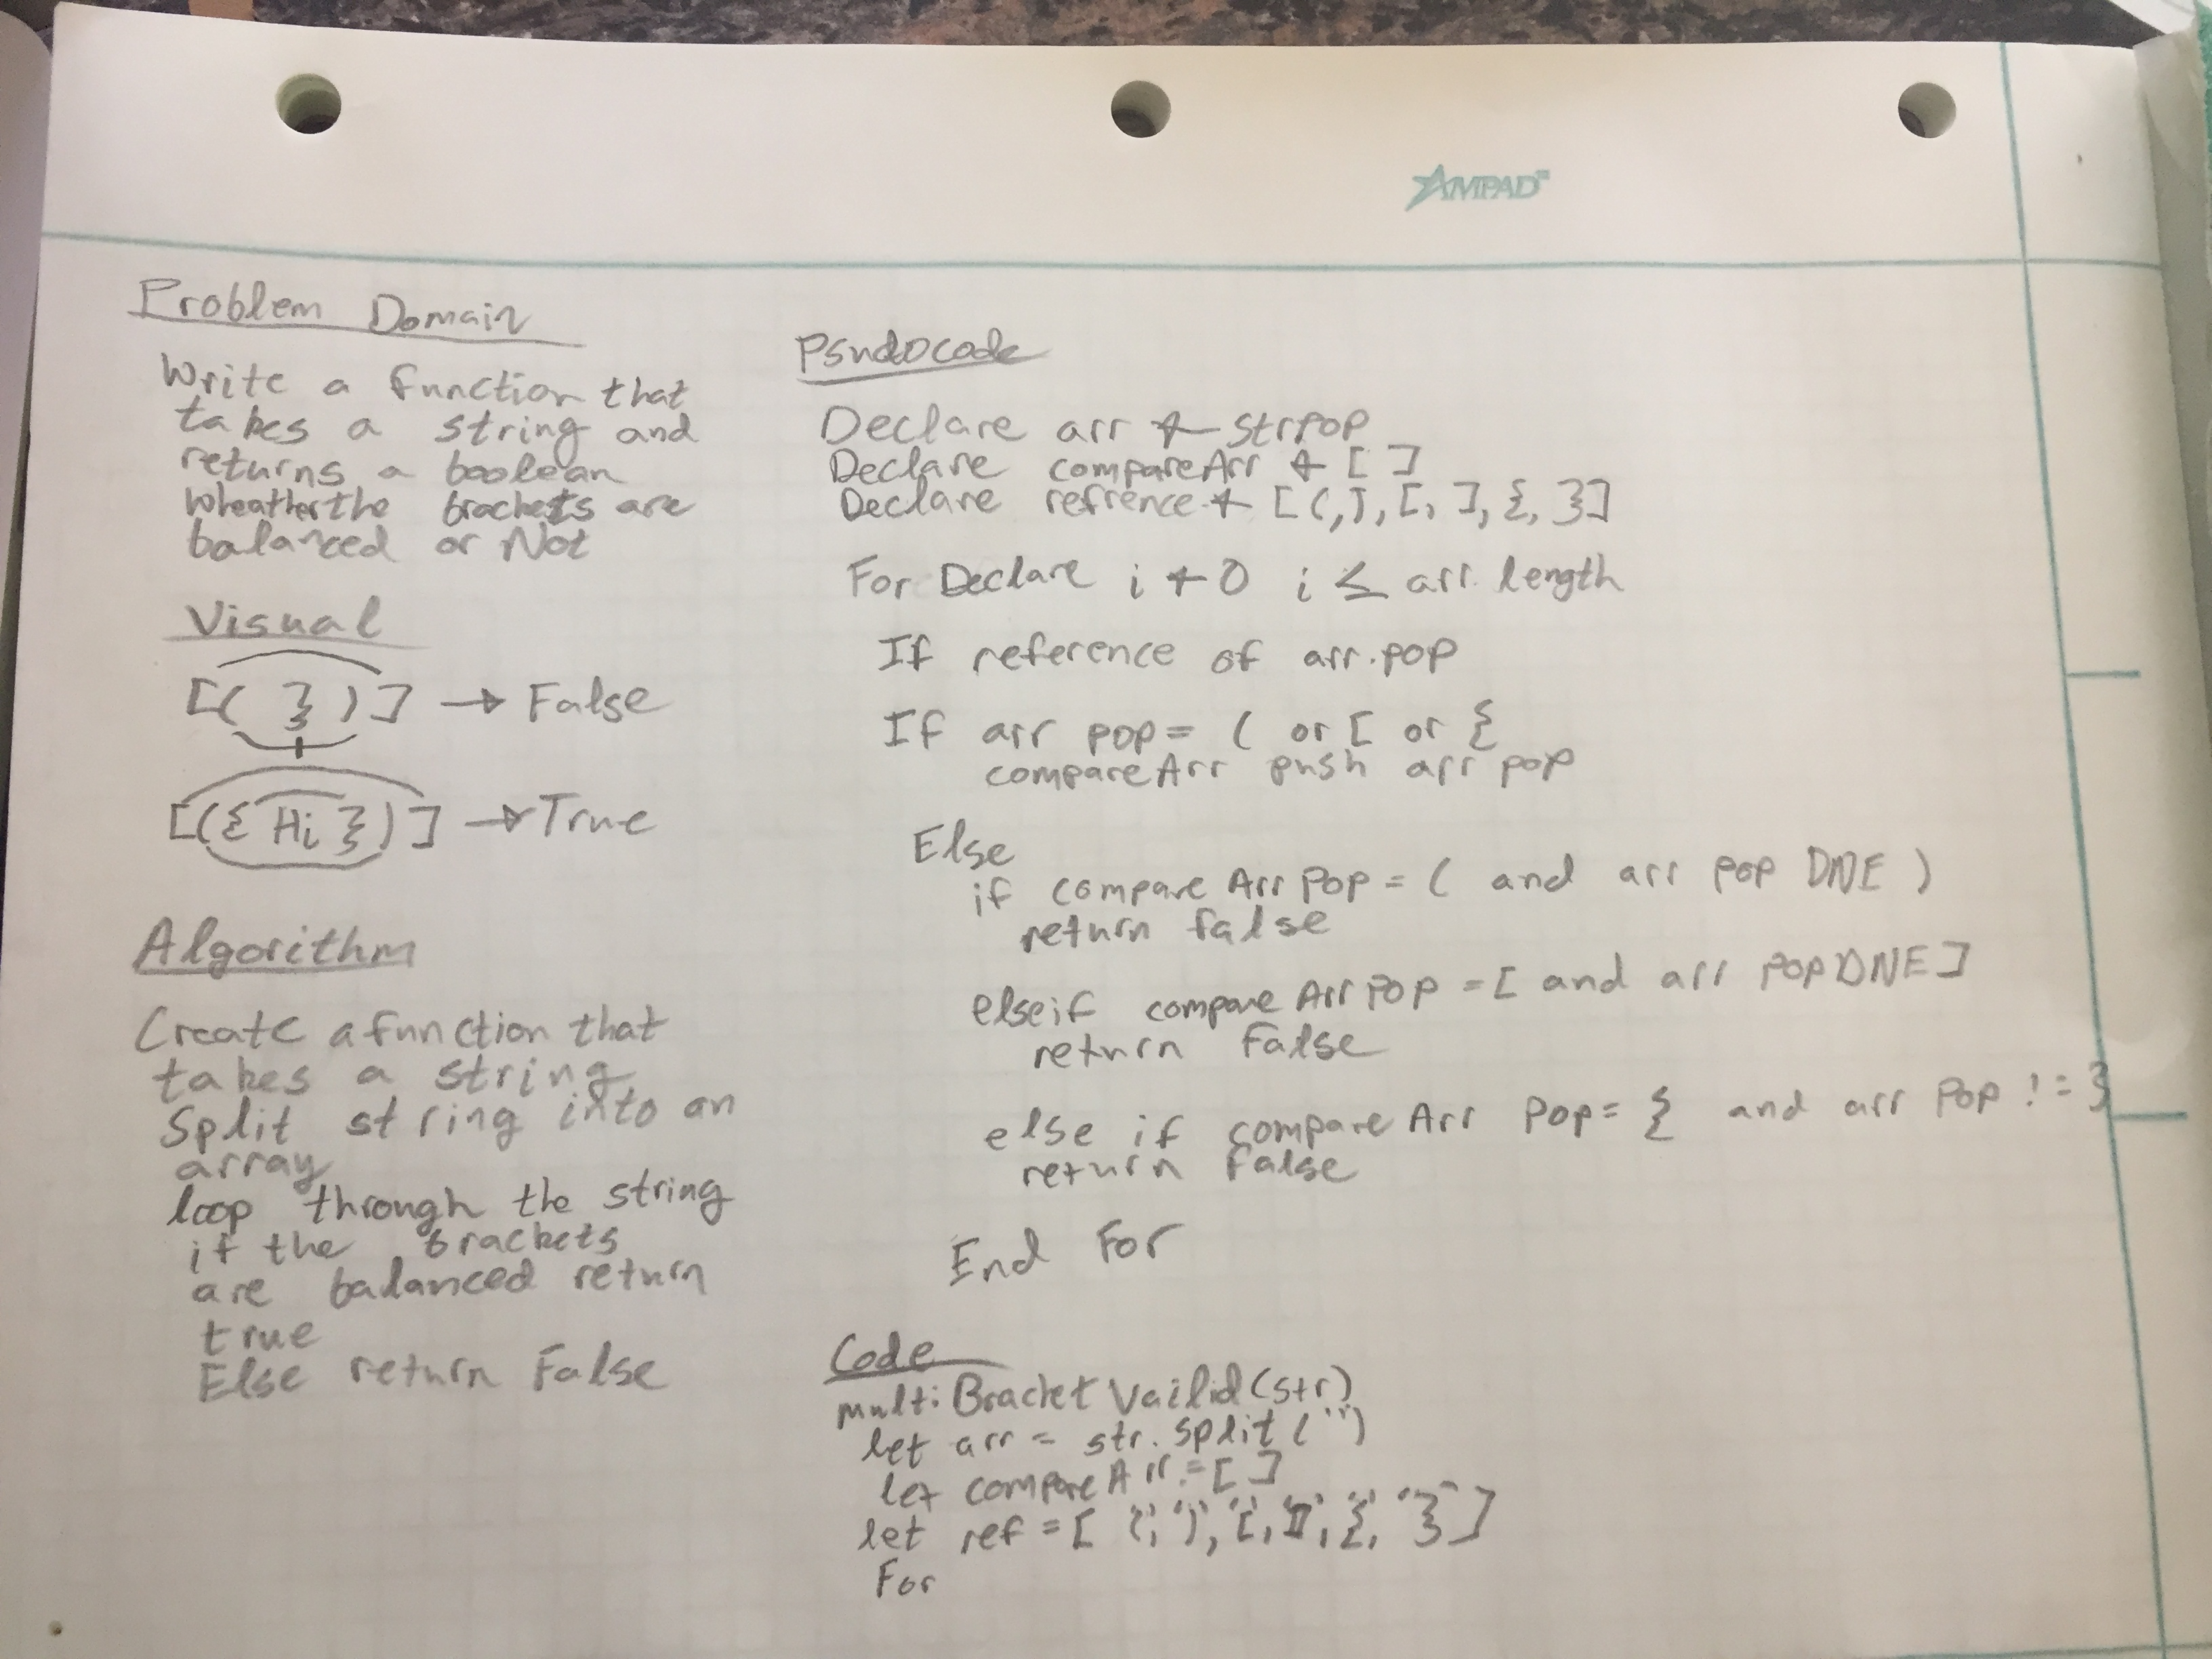 AMPAD
Problem Domain
Write a function that
takes a string and
returns a boolean
wheather the brackets are
balanced or Not
Visual
[( } )] → False
[({ Hi })] → True
Algorithm
Create a function that
takes a string
Split string into an
array
loop through the string
if the brackets
are balanced return
true
Else return False
Psudocode
Declare arr ← str pop
Declare compareArr ← [ ]
Declare refrence ← [(,], [, ], {, }]
For Declare i ← 0 i ≤ arr. length
If reference of arr.pop
If arr pop = ( or [ or {
compareArr push arr pop
Else
if compareArr Pop = ( and arr pop DNE )
return false
elseif compareArr pop = [ and arr pop DNE ]
return False
else if compareArr Pop = { and arr Pop != }
return False
End For
Code
multiBracketVailid(str)
let arr = str.split('')
let compareArr = [ ]
let ref = [ '(', ')', '[', ']', '{', '}' ]
For